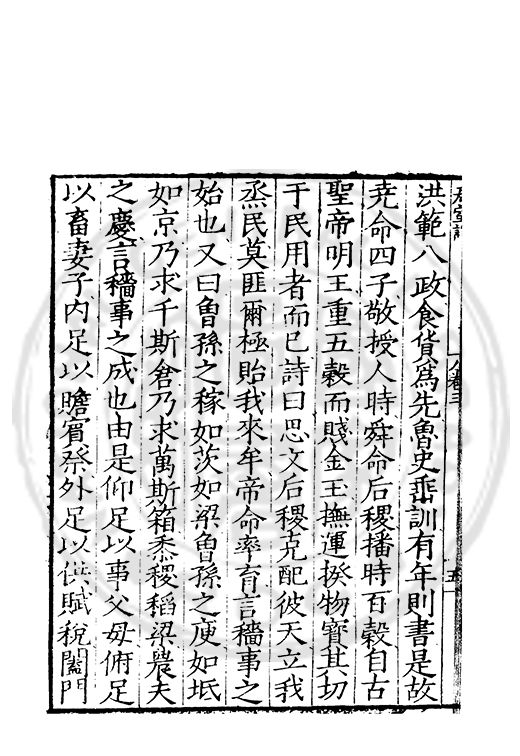 卷三
五
洪範八政食貨爲先魯史垂訓有年則書是故
堯命四子敬授人時舜命后稷播時百穀自古
聖帝明王重五穀而賤金玉撫運揆物寳其切
于民用者而已詩曰思文后稷克配彼天立我
烝民莫匪爾極貽我來牟帝命率育言穡事之
始也又曰魯孫之稼如茨如梁魯孫之庾如坻
如京乃求千斯倉乃求萬斯箱黍稷稻梁農夫
之慶言穡事之成也由是仰足以事父母俯足
以畜妻子内足以贍賓祭外足以供賦稅闔門